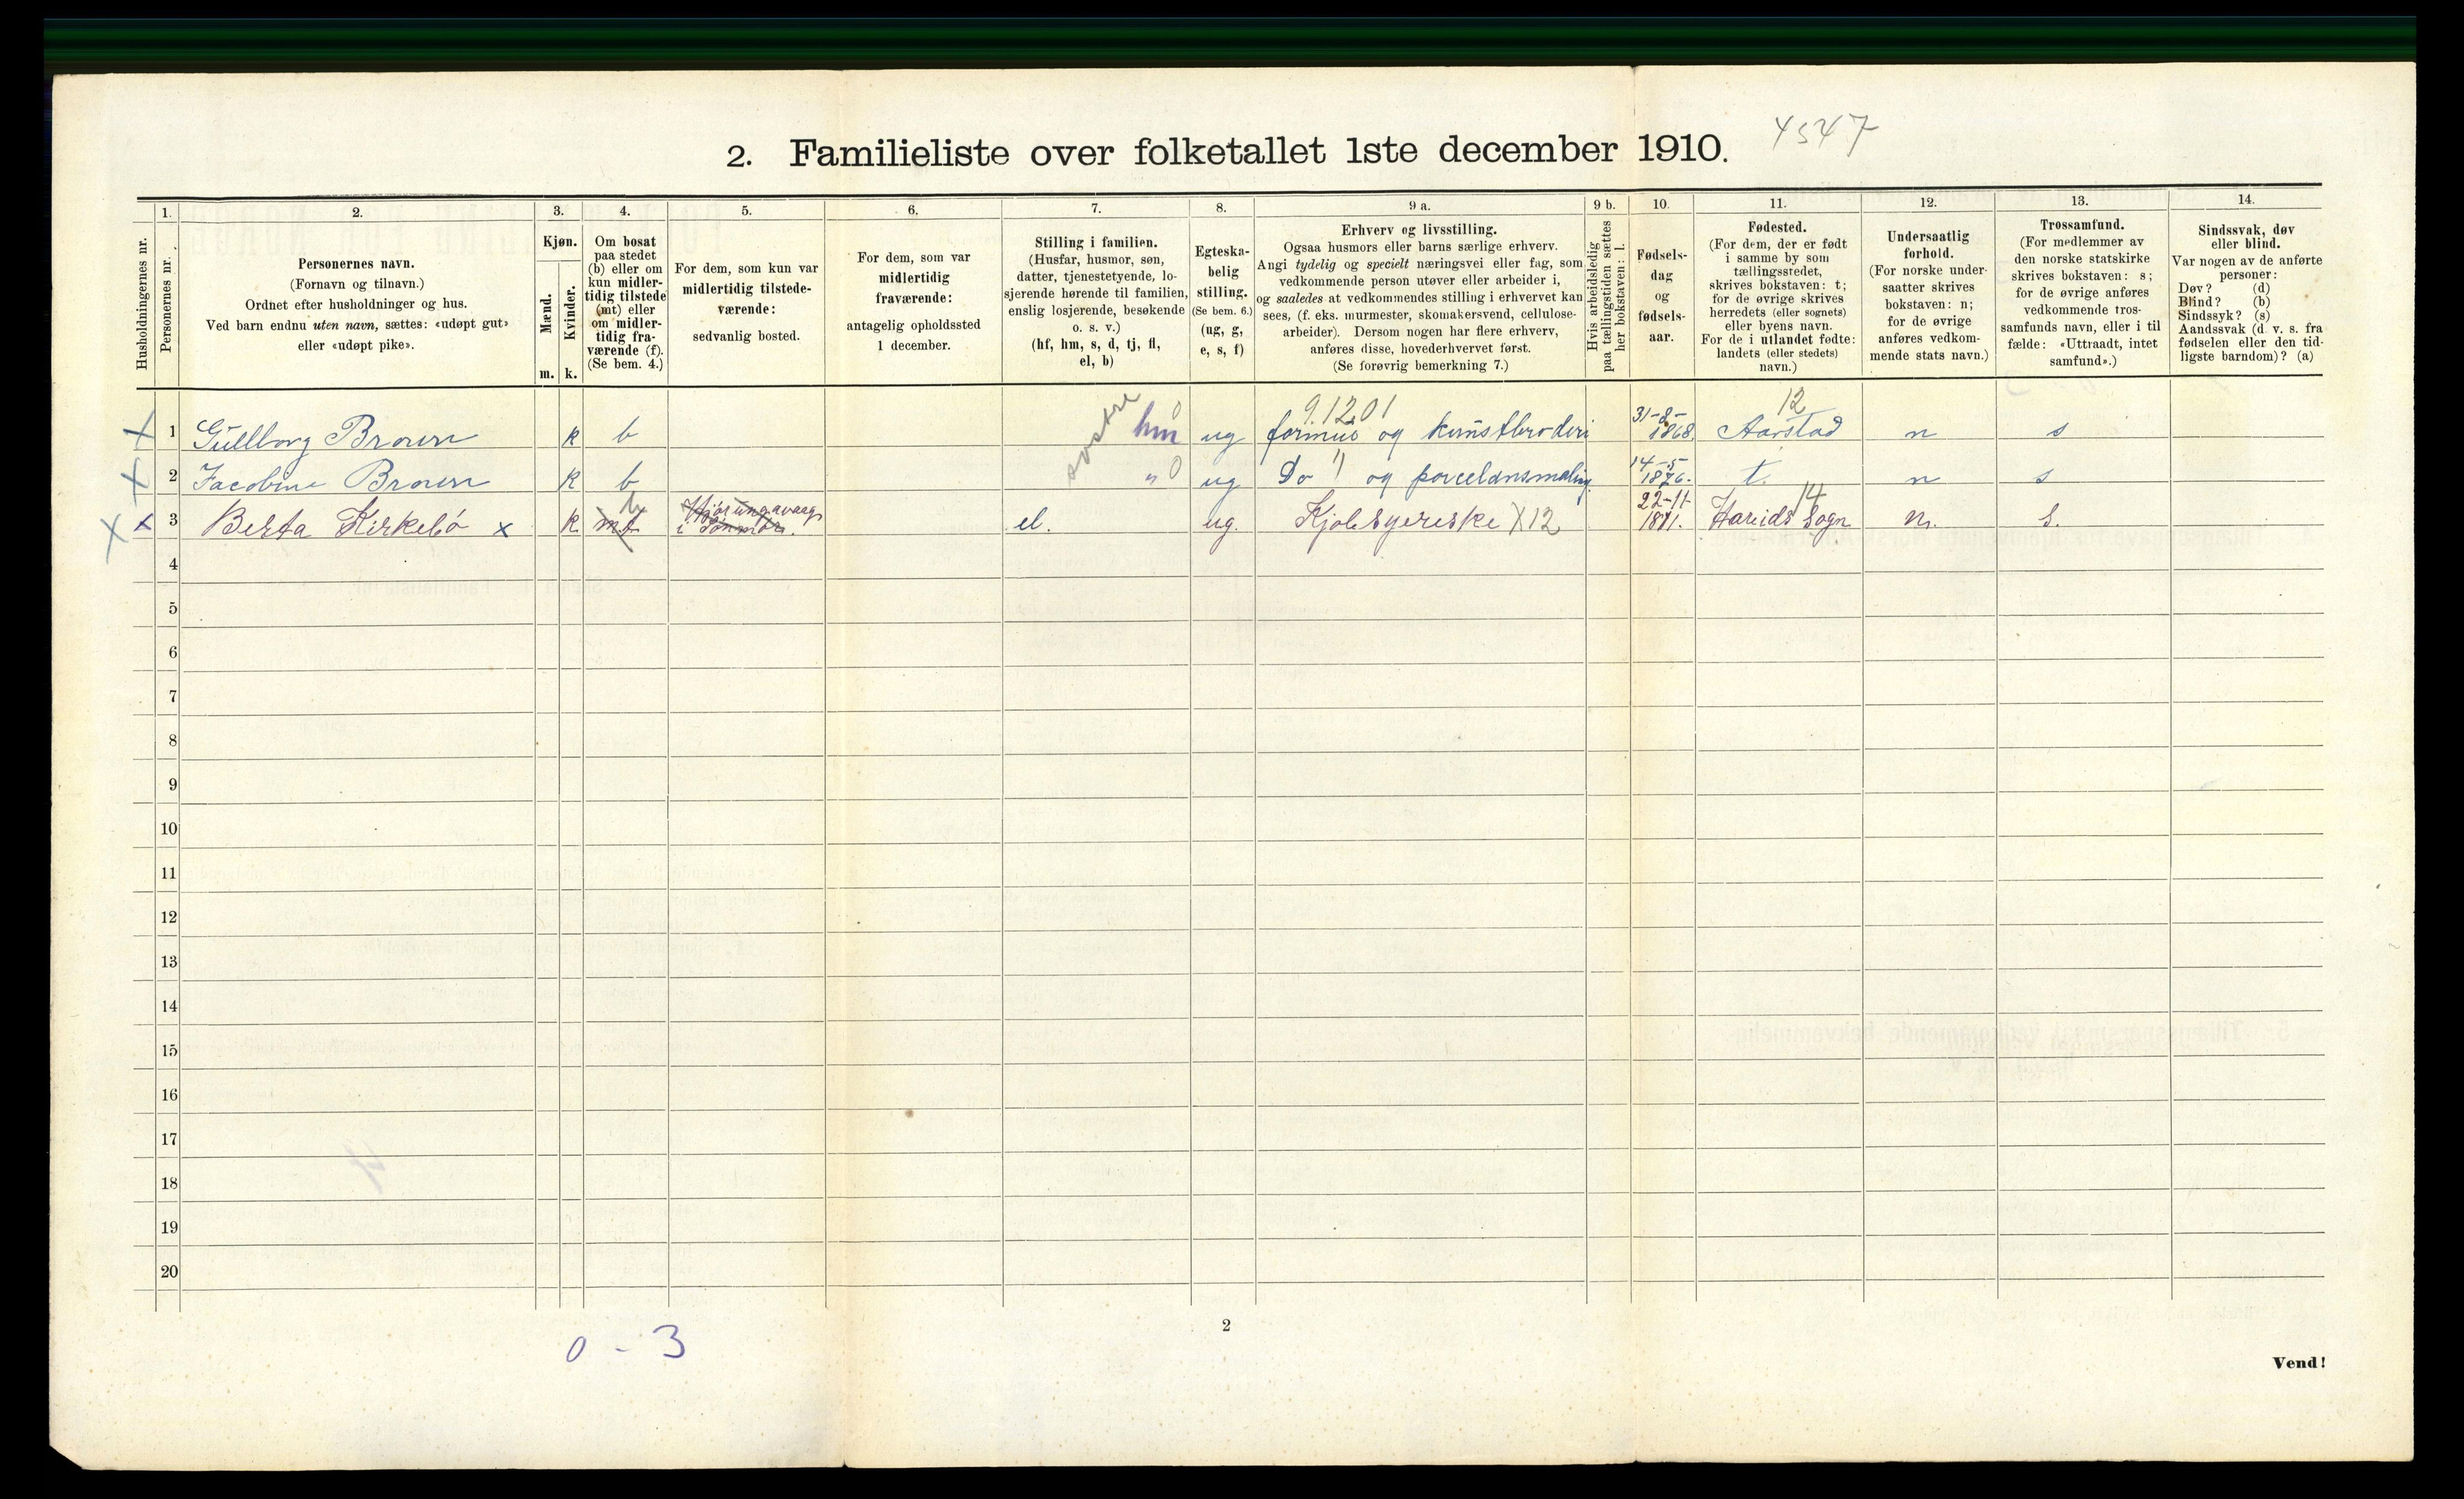 2. Familieliste over folketallet 1ste december 1910. 4547
Husholdningernes nr.
1. Personernes nr.
2. Personernes navn.
(Fornavn og tilnavn.)
Ordnet efter husholdninger og hus.
Ved barn endnu uten navn, sættes: «udøpt gut»
eller «udøpt pike».
3. Kjøn.
Mænd. m.
Kvinder. k.
4. Om bosat
paa stedet
(b) eller om
kun midler-
tidig tilstede
(mt) eller
om midler-
tidig fra-
værende (f).
(Se bem. 4.)
5. For dem, som kun var
midlertidig tilstede-
værende:
sedvanlig bosted.
6. For dem, som var
midlertidig
fraværende:
antagelig opholdssted
1 december.
7. Stilling i familien.
(Husfar, husmor, søn,
datter, tjenestetyende, lo-
sjerende hørende til familien,
enslig losjerende, besøkende
o. s. v.)
(hf, hm, s, d, tj, fl,
el, b)
8. Egteska-
belig
stilling.
(Se bem. 6.)
(ug, g,
e, s, f)
9 a. Erhverv og livsstilling.
Ogsaa husmors eller barns særlige erhverv.
Angi tydelig og specielt næringsvei eller fag, som
vedkommende person utøver eller arbeider i,
og saaledes at vedkommendes stilling i erhvervet kan
sees, (f. eks. murmester, skomakersvend, cellulose-
arbeider). Dersom nogen har flere erhverv,
anføres disse, hovederhvervet først.
(Se forøvrig bemerkning 7.)
9 b. Hvis arbeidsledig
paa tællingstiden sættes
her bokstaven: l.
10. Fødsels-
dag
og
fødsels-
aar.
11. Fødested.
(For dem, der er født
i samme by som
tællingsstedet,
skrives bokstaven: t;
for de øvrige skrives
herredets (eller sognets)
eller byens navn.
For de i utlandet fødte:
landets (eller stedets)
navn.)
12. Undersaatlig
forhold.
(For norske under-
saatter skrives
bokstaven: n;
for de øvrige
anføres vedkom-
mende stats navn.)
13. Trossamfund.
(For medlemmer av
den norske statskirke
skrives bokstaven: s;
for de øvrige anføres
vedkommende tros-
samfunds navn, eller i til
fælde: «Uttraadt, intet
samfund».)
14. Sindssvak, døv
eller blind.
Var nogen av de anførte
personer:
Døv? (d)
Blind? (b)
Sindssyk? (s)
Aandssvak (d. v. s. fra
fødselen eller den tid-
ligste barndom)? (a)
søstre 0 9.1201 12
X 1 Gullborg Brown k b hm ug formue og kunstbroderi 31-8-1868. Aarstad n s
X 2 Jacobine Brown k b " 0 ug Do " og porcelænsmaling. 14-5-1876. t. n s
X x 3 Berta Kirkebø x k mt b Hjörungavaag i Sönmör. el. ug. Kjolesyerske X12 22-11-1871. Hareids Sogn 14 n. s.
4
5
6
7
8
9
10
11
12
13
14
15
16
17
18
19
20
0 - 3
2
Vend!